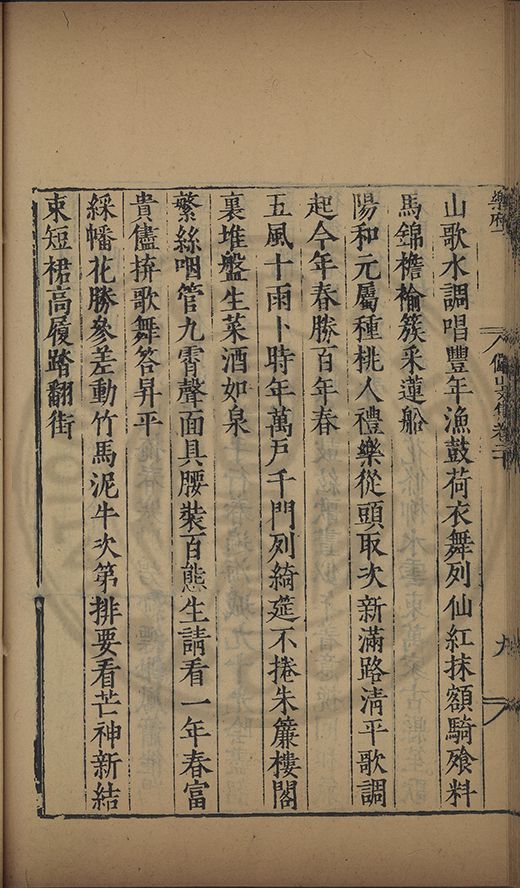 樂府
卷二
九
山歌水調唱豐年漁鼓荷衣舞列仙紅抹額騎飱料
馬錦襜褕簇采蓮船
陽和元屬種桃人禮樂從頭取次新滿路清平歌調
起今年春勝百年春
五風十雨卜時年萬戶千門列綺筵不捲朱簾樓閣
裏堆盤生菜酒如泉
繁絲咽管九霄聲面具腰裝百態生請看一年春富
貴儘拚歌舞答昇平
綵幡花勝參差動竹馬泥牛次第排要看芒神新結
束短裙高履踏翻街